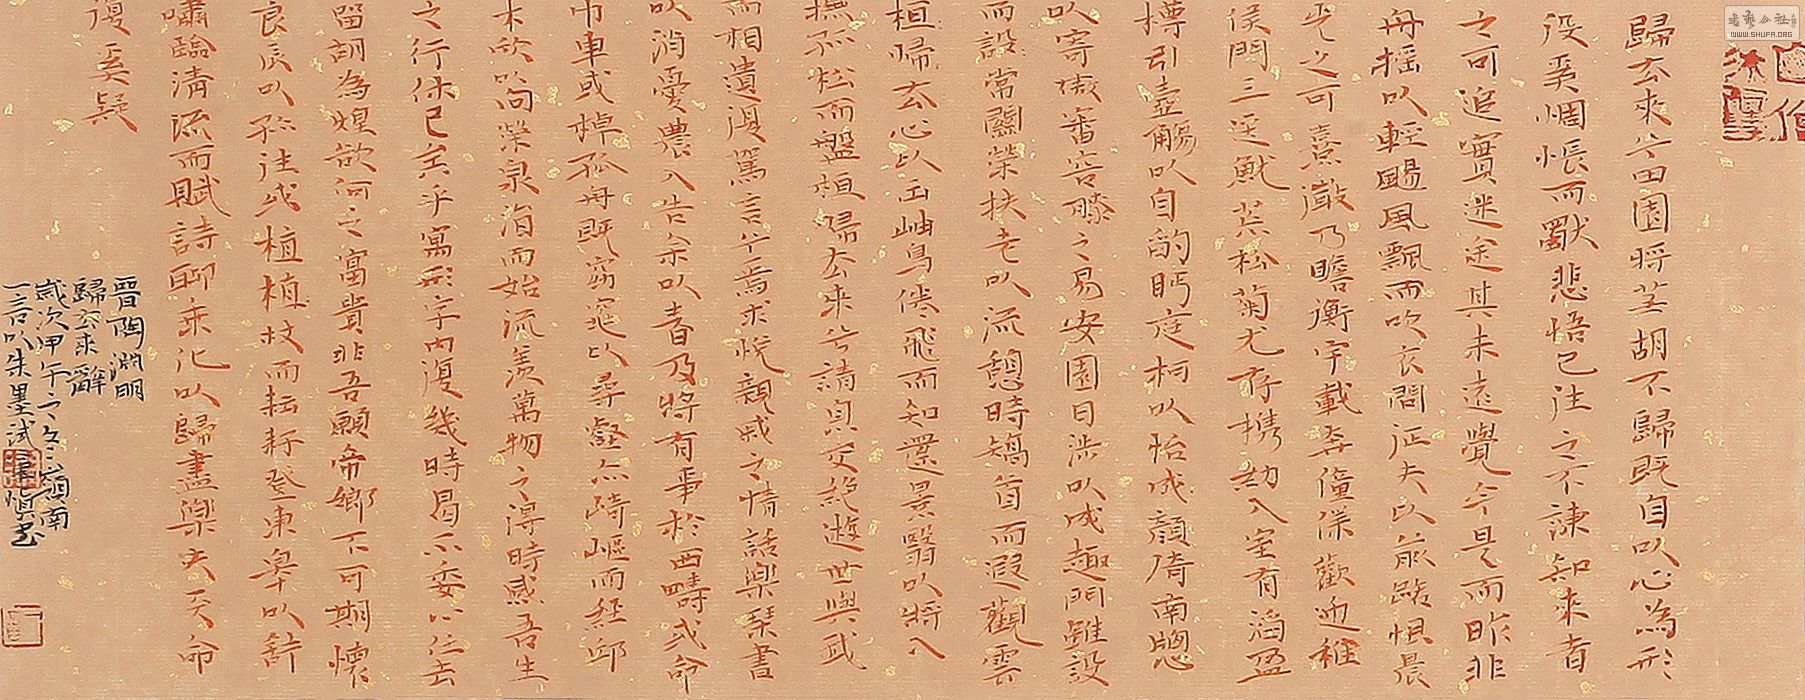 歸去來兮田園將蕪胡不歸既自以心為形
役奚惆悵而獨悲悟已往之不諫知來者
之可追實迷途其未遠覺今是而昨非
舟搖以輕颺風飄而吹衣問征夫以前路恨晨
光之可熹乃瞻衡宇載奔僮僕歡迎稚
侯門三逕就荒松菊尤存携幼入室有酒盈
樽引壺觴以自酌眄庭柯以怡成顏倚南牕
以寄傲審容膝之易安園日涉以成趣門雖設
而設常關榮扶老以流憩時矯首而遐觀雲
桓歸去心以出岫鳥倦飛而知還景翳以將入
撫孤松而盤桓歸去來兮請息交絕遊世與我
而相遺復駕言兮焉求悅親戚之情話樂琴書
以消憂農人告余以春乃將有事於西疇或命
巾車或棹孤舟既窈窕以尋壑亦崎嶇而經邱
木欣以向榮泉涓而始流羨萬物之得時感吾生
之行休已矣乎寓形宇內復幾時曷不委心任去
留訓為煌欲何之富貴非吾願帝鄉不可期懷
良辰以孤往或植植杖而耘耔登東皋以舒
嘯臨清流而賦詩聊乘化以歸盡樂夫天命
復奚疑
晉陶淵明
歸去來辭
歲次甲午之冬嶺南
一言以朱墨試慎書
WWW.SHUFA.ORG